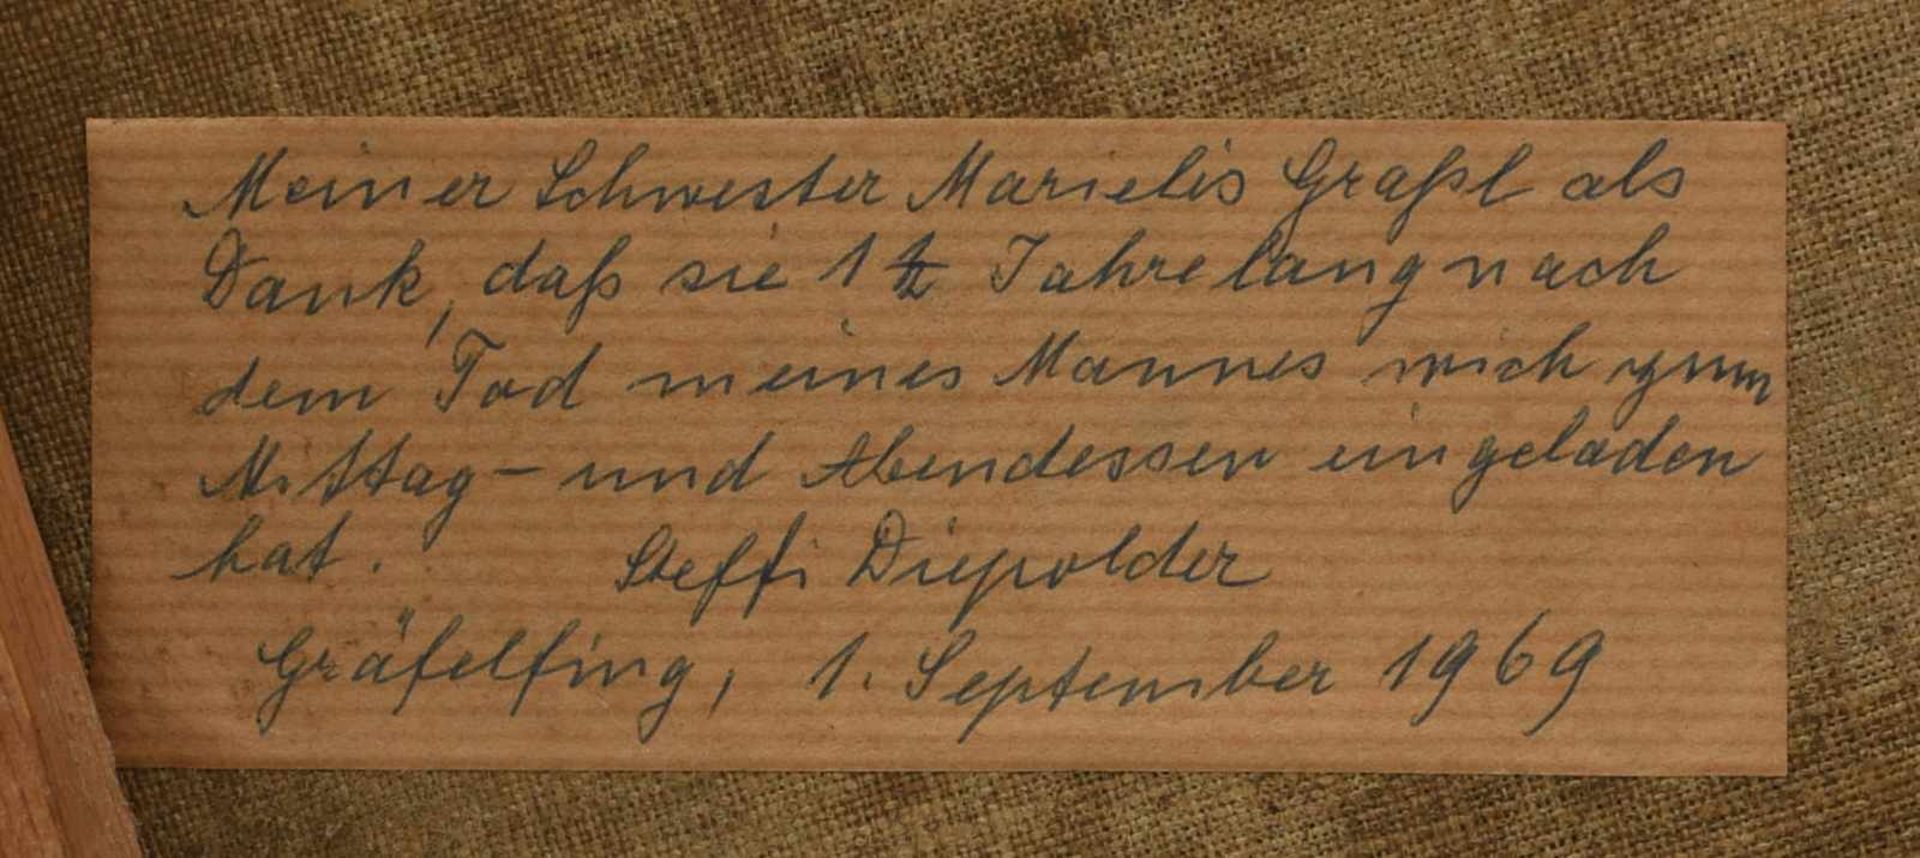 Meiner Schwester Marielis Graßl als
Dank, daß sie 1 ½ Jahre lang nach
dem Tod meines Mannes mich zum
Mittag- und Abendessen eingeladen
hat. Steffi Diepolder
Gräfelfing, 1. September 1969